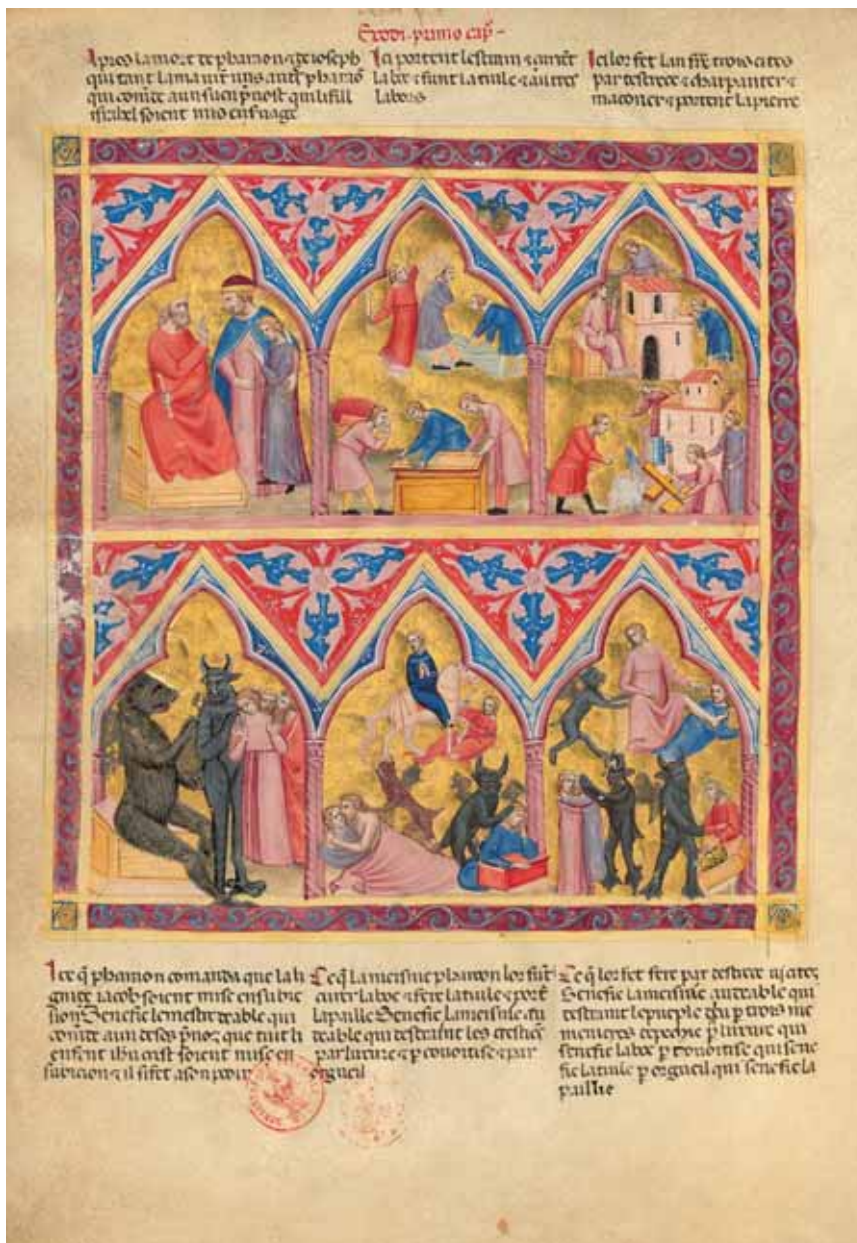 Exodi. primo cap̄ -
Apres la mort de pharaon ⁊ de ioseph
qui tant lama vint uns autre pharaō
qui comāde a un suen p̄uost qui li fill
israhel soient mis en seruage
Ici portent lestraim ⁊
la boe ⁊ funt la tiule ⁊ autres
labors
Ici lor fet lan fēre trois cites
par destrece ⁊ charpanter ⁊
maconer ⁊ portent la pierre
Ice q̄ pharaon comanda que la li
gniee iacob soient mise en subie
sion Senefie le mestre deable qui
comāde a un de ses p̄uoz que tuit li
enfent ihū crist soient mise en
subicion ⁊ il si fet a son pooir
Ce q̄ la meisnie pharaon lor funt
la boe ⁊ fere la tiule ⁊ port
la paille Senefie la meisnie au
deable qui destraint les crestiens
par luxure ⁊ p couoitise ⁊ par
orgueil
Ce q̄ lor fet fere par destrece iij citez
Senefie la meisnie au deable qui
destraint le pueple p trois
de pechie p luxure qui
senefie la boe p couoitise qui sene
fie la tiule p orgueil qui senefie la
paillie